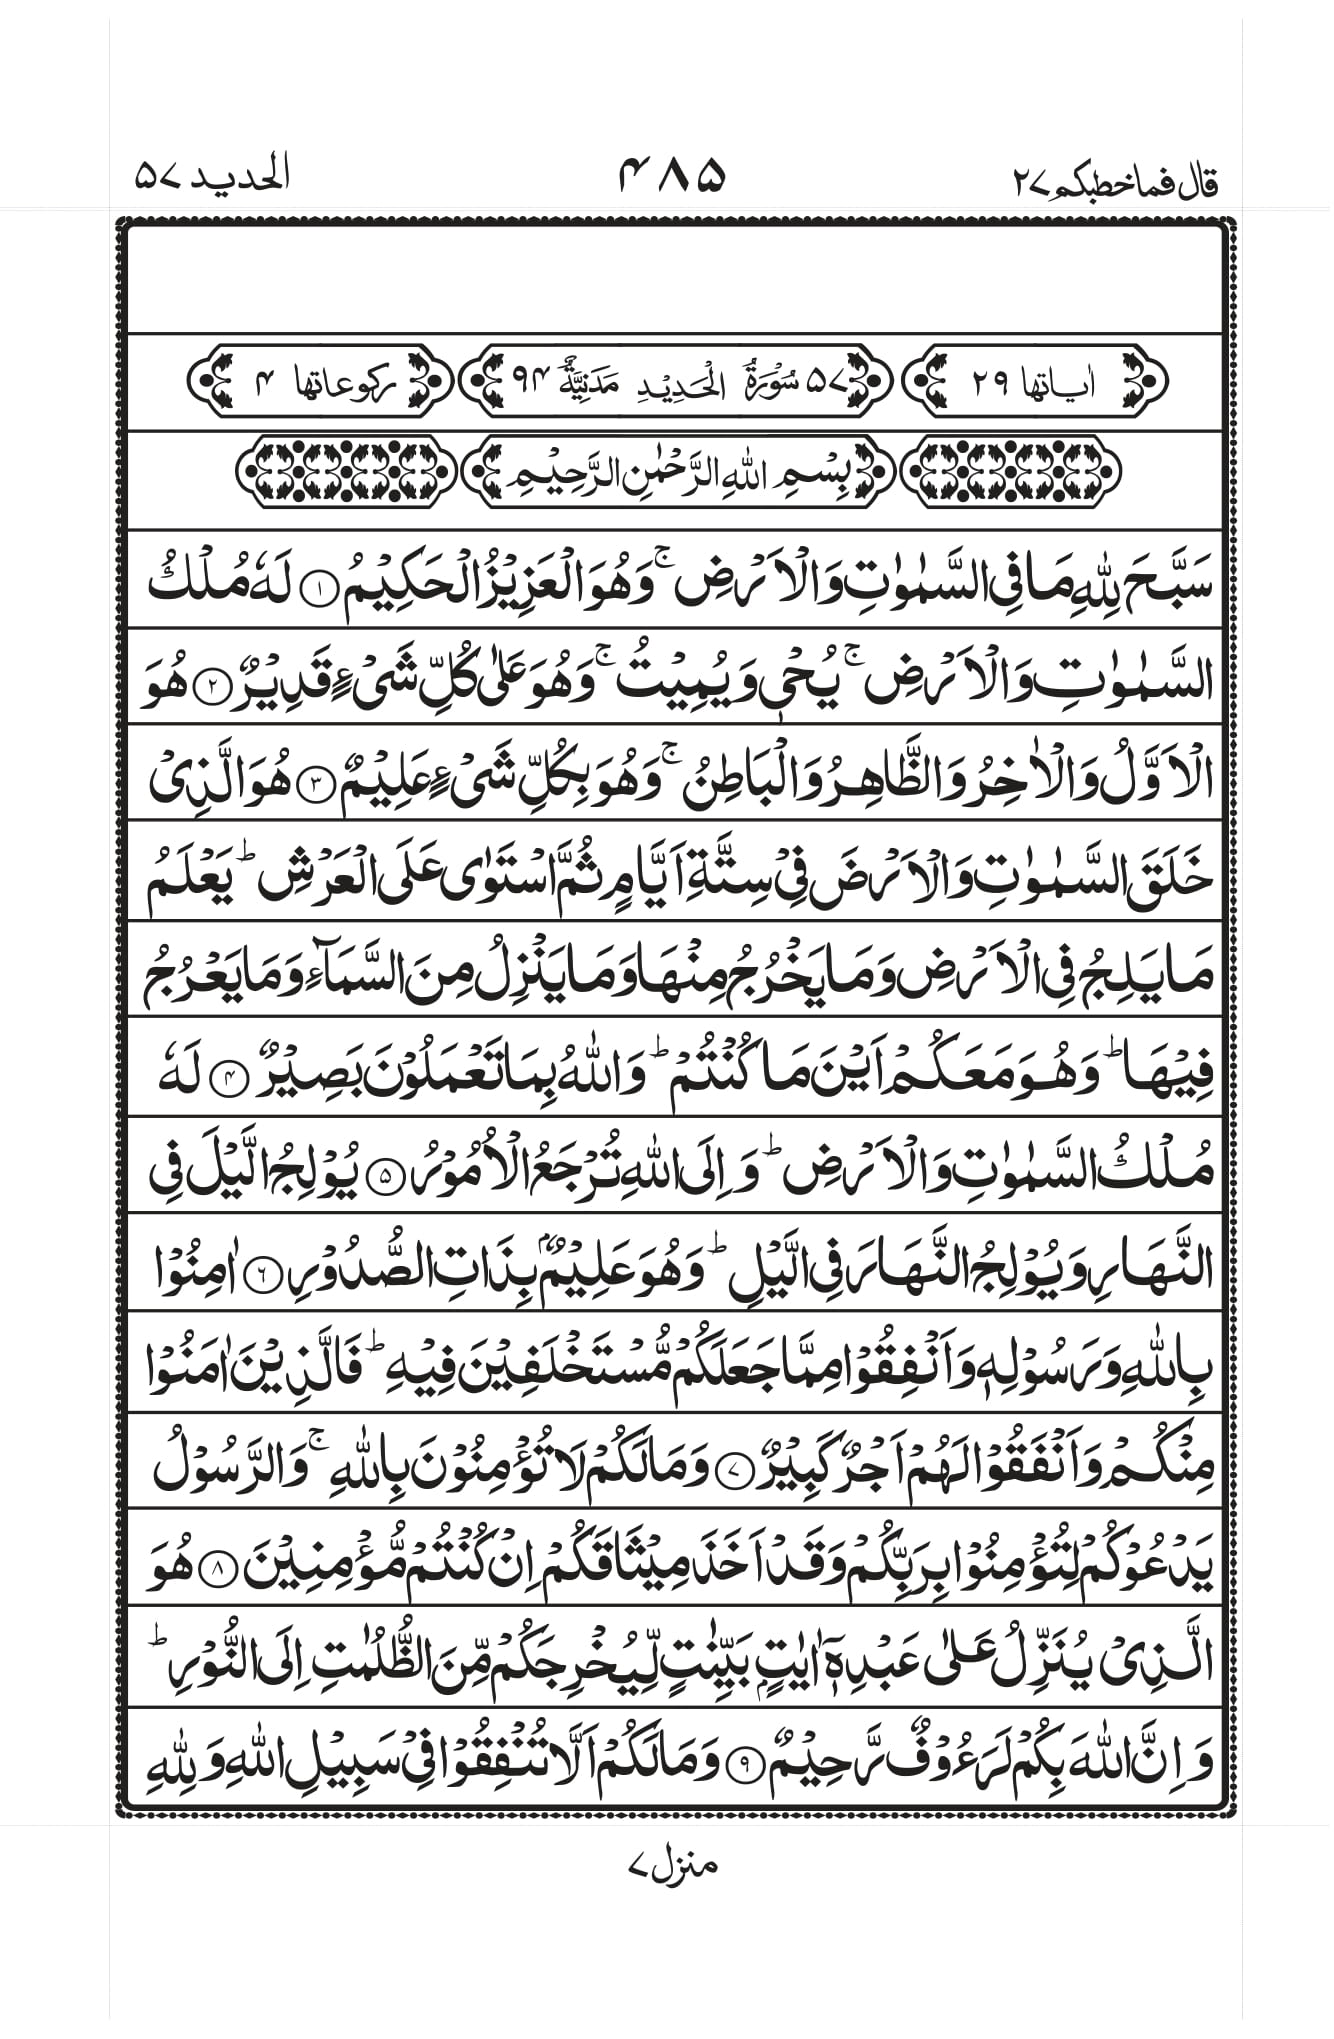 قال فما خطبکم ۲۷
۴۸۵
الحديد ۵۷
اٰیاتها ۲۹
۵۷ سُوْرَةُ الْحَدِيْدِ مَدَنِيَّةٌ ۹۴
رکوعاتها ۴
بِسْمِ اللهِ الرَّحْمٰنِ الرَّحِيْمِ
سَبَّحَ لِلّٰهِ مَا فِي السَّمٰوٰتِ وَالْاَرْضِ ۚ وَهُوَ الْعَزِيْزُ الْحَكِيْمُ ۝۱ لَهٗ مُلْكُ
السَّمٰوٰتِ وَالْاَرْضِ ۚ يُحْيٖ وَيُمِيْتُ ۚ وَهُوَ عَلٰى كُلِّ شَيْءٍ قَدِيْرٌ ۝۲ هُوَ
الْاَوَّلُ وَالْاٰخِرُ وَالظَّاهِرُ وَالْبَاطِنُ ۚ وَهُوَ بِكُلِّ شَيْءٍ عَلِيْمٌ ۝۳ هُوَ الَّذِيْ
خَلَقَ السَّمٰوٰتِ وَالْاَرْضَ فِيْ سِتَّةِ اَيَّامٍ ثُمَّ اسْتَوٰى عَلَى الْعَرْشِ ؕ يَعْلَمُ
مَا يَلِجُ فِي الْاَرْضِ وَمَا يَخْرُجُ مِنْهَا وَمَا يَنْزِلُ مِنَ السَّمَآءِ وَمَا يَعْرُجُ
فِيْهَا ؕ وَهُوَ مَعَكُمْ اَيْنَ مَا كُنْتُمْ ؕ وَاللهُ بِمَا تَعْمَلُوْنَ بَصِيْرٌ ۝۴ لَهٗ
مُلْكُ السَّمٰوٰتِ وَالْاَرْضِ ؕ وَاِلَى اللهِ تُرْجَعُ الْاُمُوْرُ ۝۵ يُوْلِجُ الَّيْلَ فِي
النَّهَارِ وَيُوْلِجُ النَّهَارَ فِي الَّيْلِ ؕ وَهُوَ عَلِيْمٌۢ بِذَاتِ الصُّدُوْرِ ۝۶ اٰمِنُوْا
بِاللهِ وَرَسُوْلِهٖ وَاَنْفِقُوْا مِمَّا جَعَلَكُمْ مُّسْتَخْلَفِيْنَ فِيْهِ ؕ فَالَّذِيْنَ اٰمَنُوْا
مِنْكُمْ وَاَنْفَقُوْا لَهُمْ اَجْرٌ كَبِيْرٌ ۝۷ وَمَا لَكُمْ لَا تُؤْمِنُوْنَ بِاللهِ ۚ وَالرَّسُوْلُ
يَدْعُوْكُمْ لِتُؤْمِنُوْا بِرَبِّكُمْ وَقَدْ اَخَذَ مِيْثَاقَكُمْ اِنْ كُنْتُمْ مُّؤْمِنِيْنَ ۝۸ هُوَ
الَّذِيْ يُنَزِّلُ عَلٰى عَبْدِهٖۤ اٰيٰتٍۭ بَيِّنٰتٍ لِّيُخْرِجَكُمْ مِّنَ الظُّلُمٰتِ اِلَى النُّوْرِ ؕ
وَاِنَّ اللهَ بِكُمْ لَرَءُوْفٌ رَّحِيْمٌ ۝۹ وَمَا لَكُمْ اَلَّا تُنْفِقُوْا فِيْ سَبِيْلِ اللهِ وَلِلّٰهِ
منزل ۷